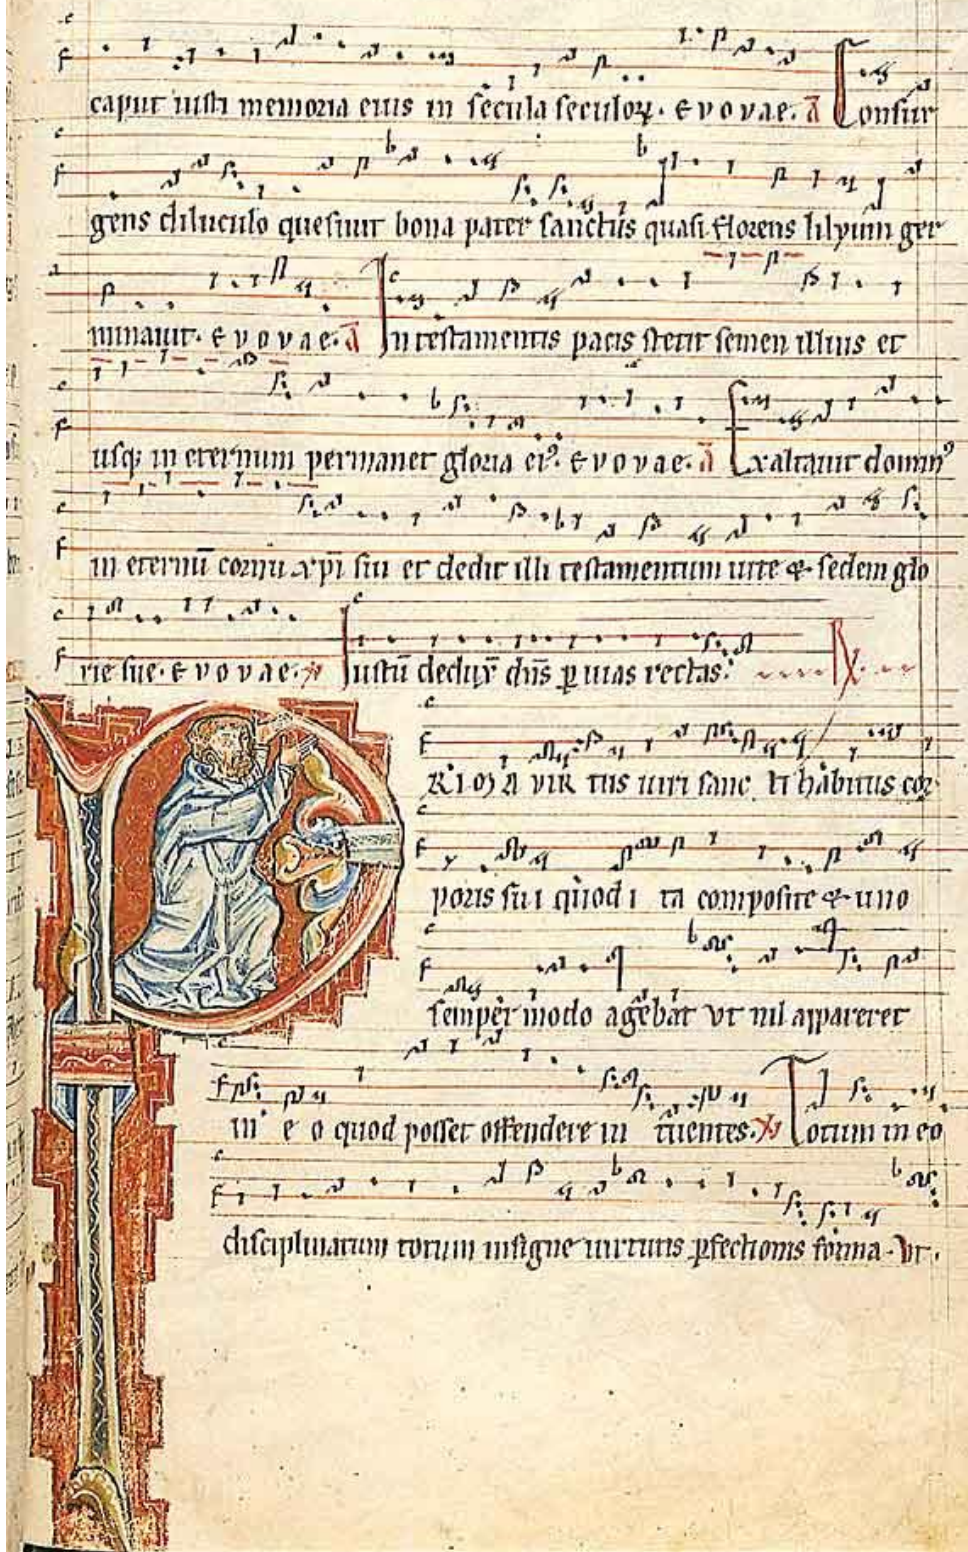 caput iusti memoria eius in secula seculoꝝ. e v o v a e. a̅ Consur
gens diluculo quesiuit bona pater sanctus quasi florens lilyum ger
minauit. e v o v a e. a̅ In testamentis pacis stetit semen illius et
usq; in eternum permanet gloria ei⁹. e v o v a e. a̅ Exaltauit domin⁹
in eternu̅ cornu xp̅i sui et dedit illi testamentum uite & sedem glo
rie sue. e v o v a e. Iustu̅ deduxit dn̅s ꝑ uias rectas.
PRIMA VIR tus uiri sanc ti habitus cor
poris sui quod i ta composite & uno
semper modo agebat vt nil appareret
in e o quod posset offendere in tuentes. Totum in eo
disciplinatum totum insigne uirtutis ꝑfectionis forma. Vt.